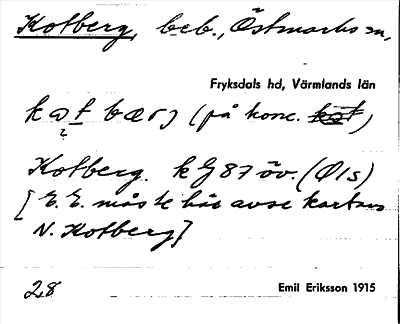 Kotberg, beb., Östmarks sn,
Fryksdals hd, Värmlands län
kɷt bærj (på konc. kɷt)
Kotberg. kG 87 öv. (Ø/s)
[E. E. måste här avse kartans
N. Kotberg]
28 Emil Eriksson 1915